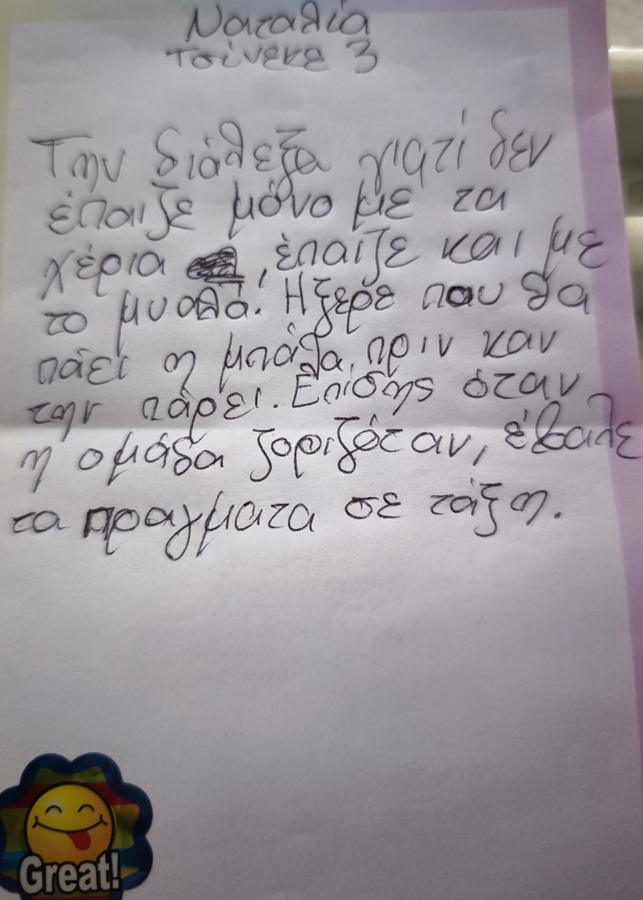 Ναταλία
τσίνεκε 3
Την διάλεξα γιατί δεν
έπαιζε μόνο με τα
χέρια, έπαιζε και με
το μυαλό! Ήξερε που θα
πάει η μπάλα πριν καν
την πάρει. Επίσης όταν
η ομάδα ζοριζόταν, έβαλε
τα πραγματα σε τάξη.
Great!